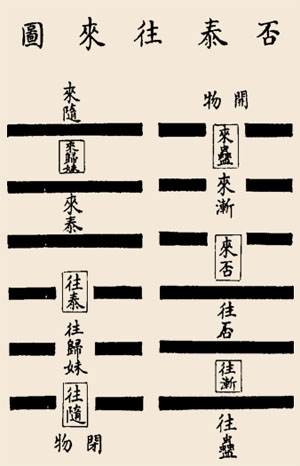 否泰往來圖
開物
來蠱
來漸
來否
往否
往漸
往蠱
來隨
來歸妹
來泰
往泰
往歸妹
往隨
閉物